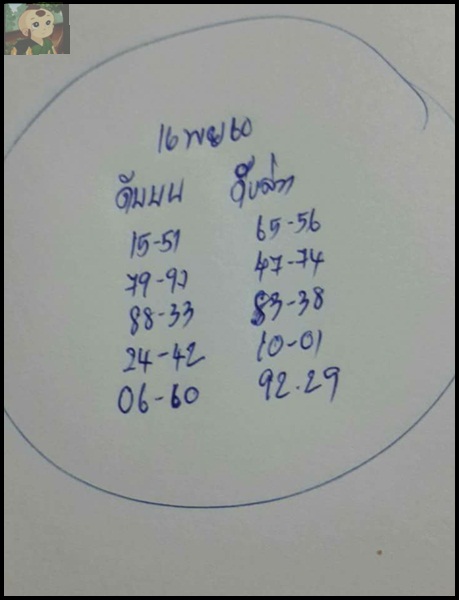 16 พย 60
ดับบน ดับล่าง
15-51 65-56
79-97 47-74
88-33 83-38
24-42 10-01
06-60 92.29